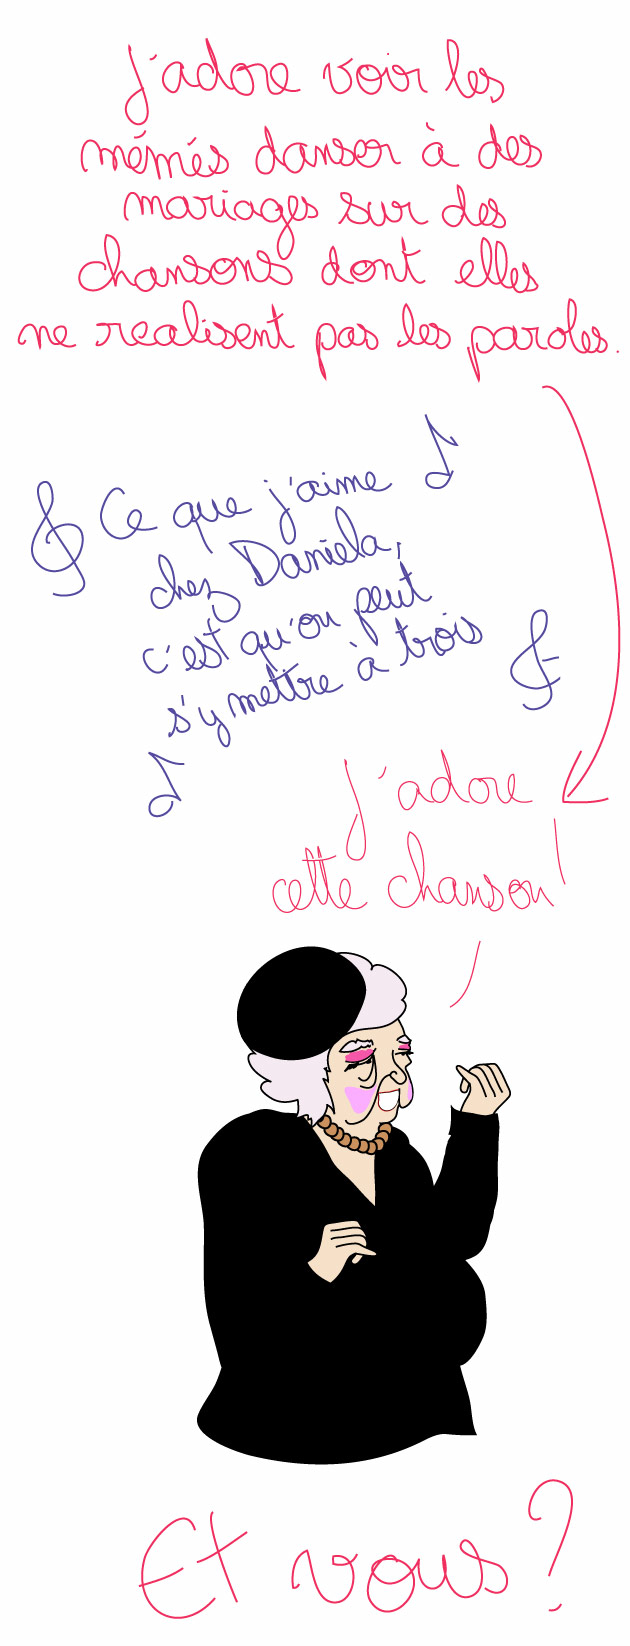 J'adore voir les
mémés danser à des
mariages sur des
chansons dont elles
ne realisent pas les paroles.
Ce que j'aime
chez Daniela,
c'est qu'on peut
s'y mettre à trois
J'adore
cette chanson!
Et vous?